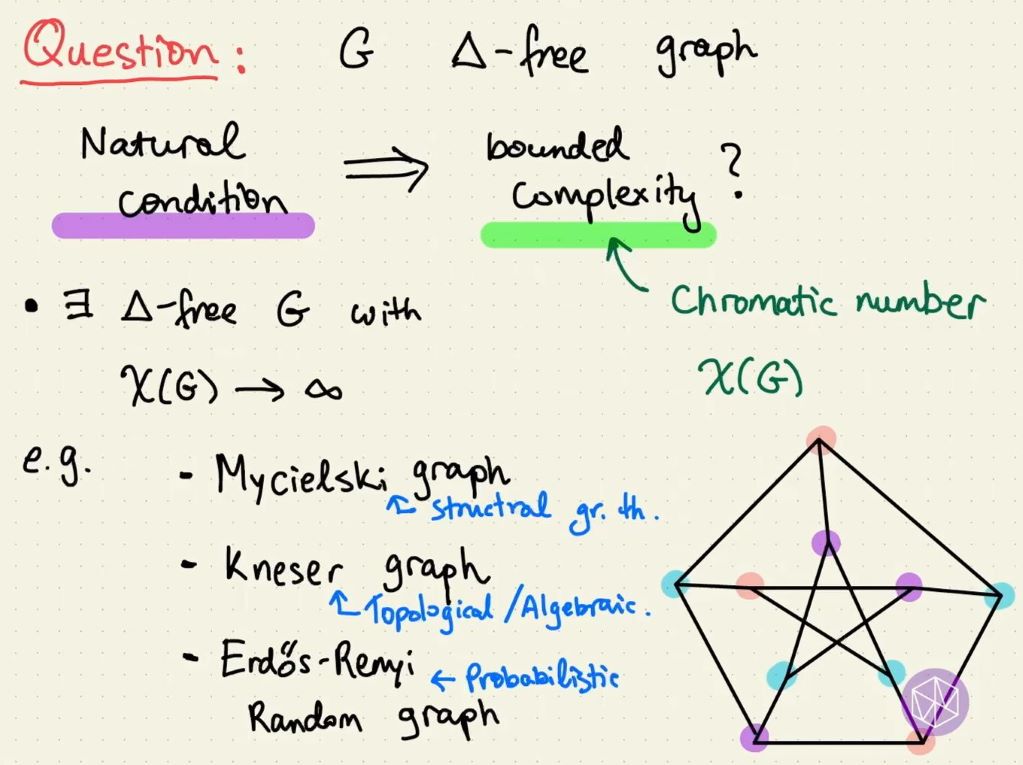 Question: G Δ-free graph
Natural condition ⟹ bounded complexity ?
Chromatic number
χ(G)
• ∃ Δ-free G with
χ(G) → ∞
e.g. - Mycielski graph
← structral gr. th.
- Kneser graph
← Topological/Algebraic.
- Erdős-Renyi ← Probabilistic
Random graph